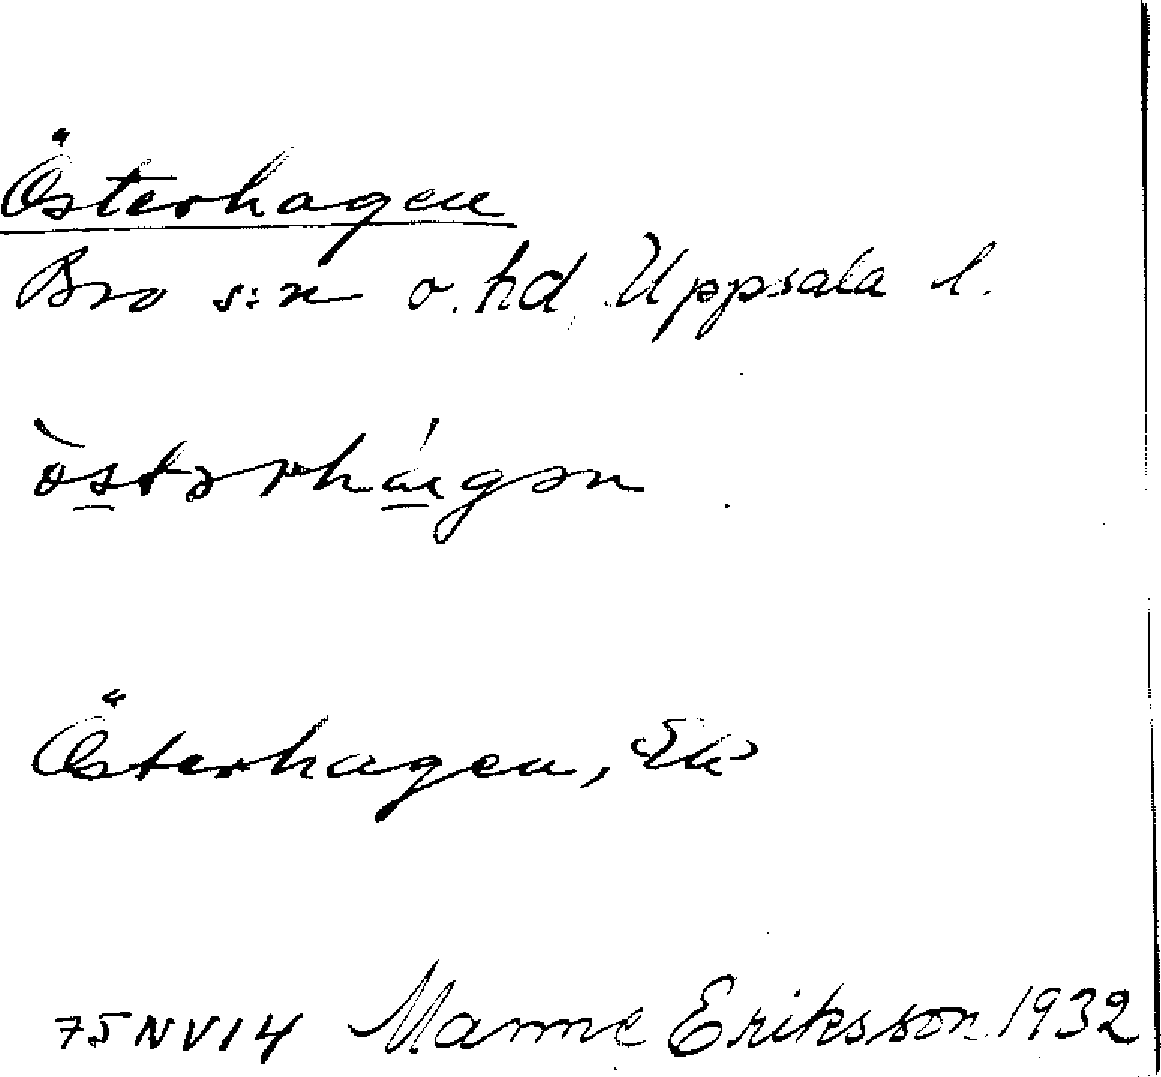 Österhagen
Bro s:n o. hd, Uppsala l.
Österhagen, Ek
75 NV 14 Manne Eriksson 1932